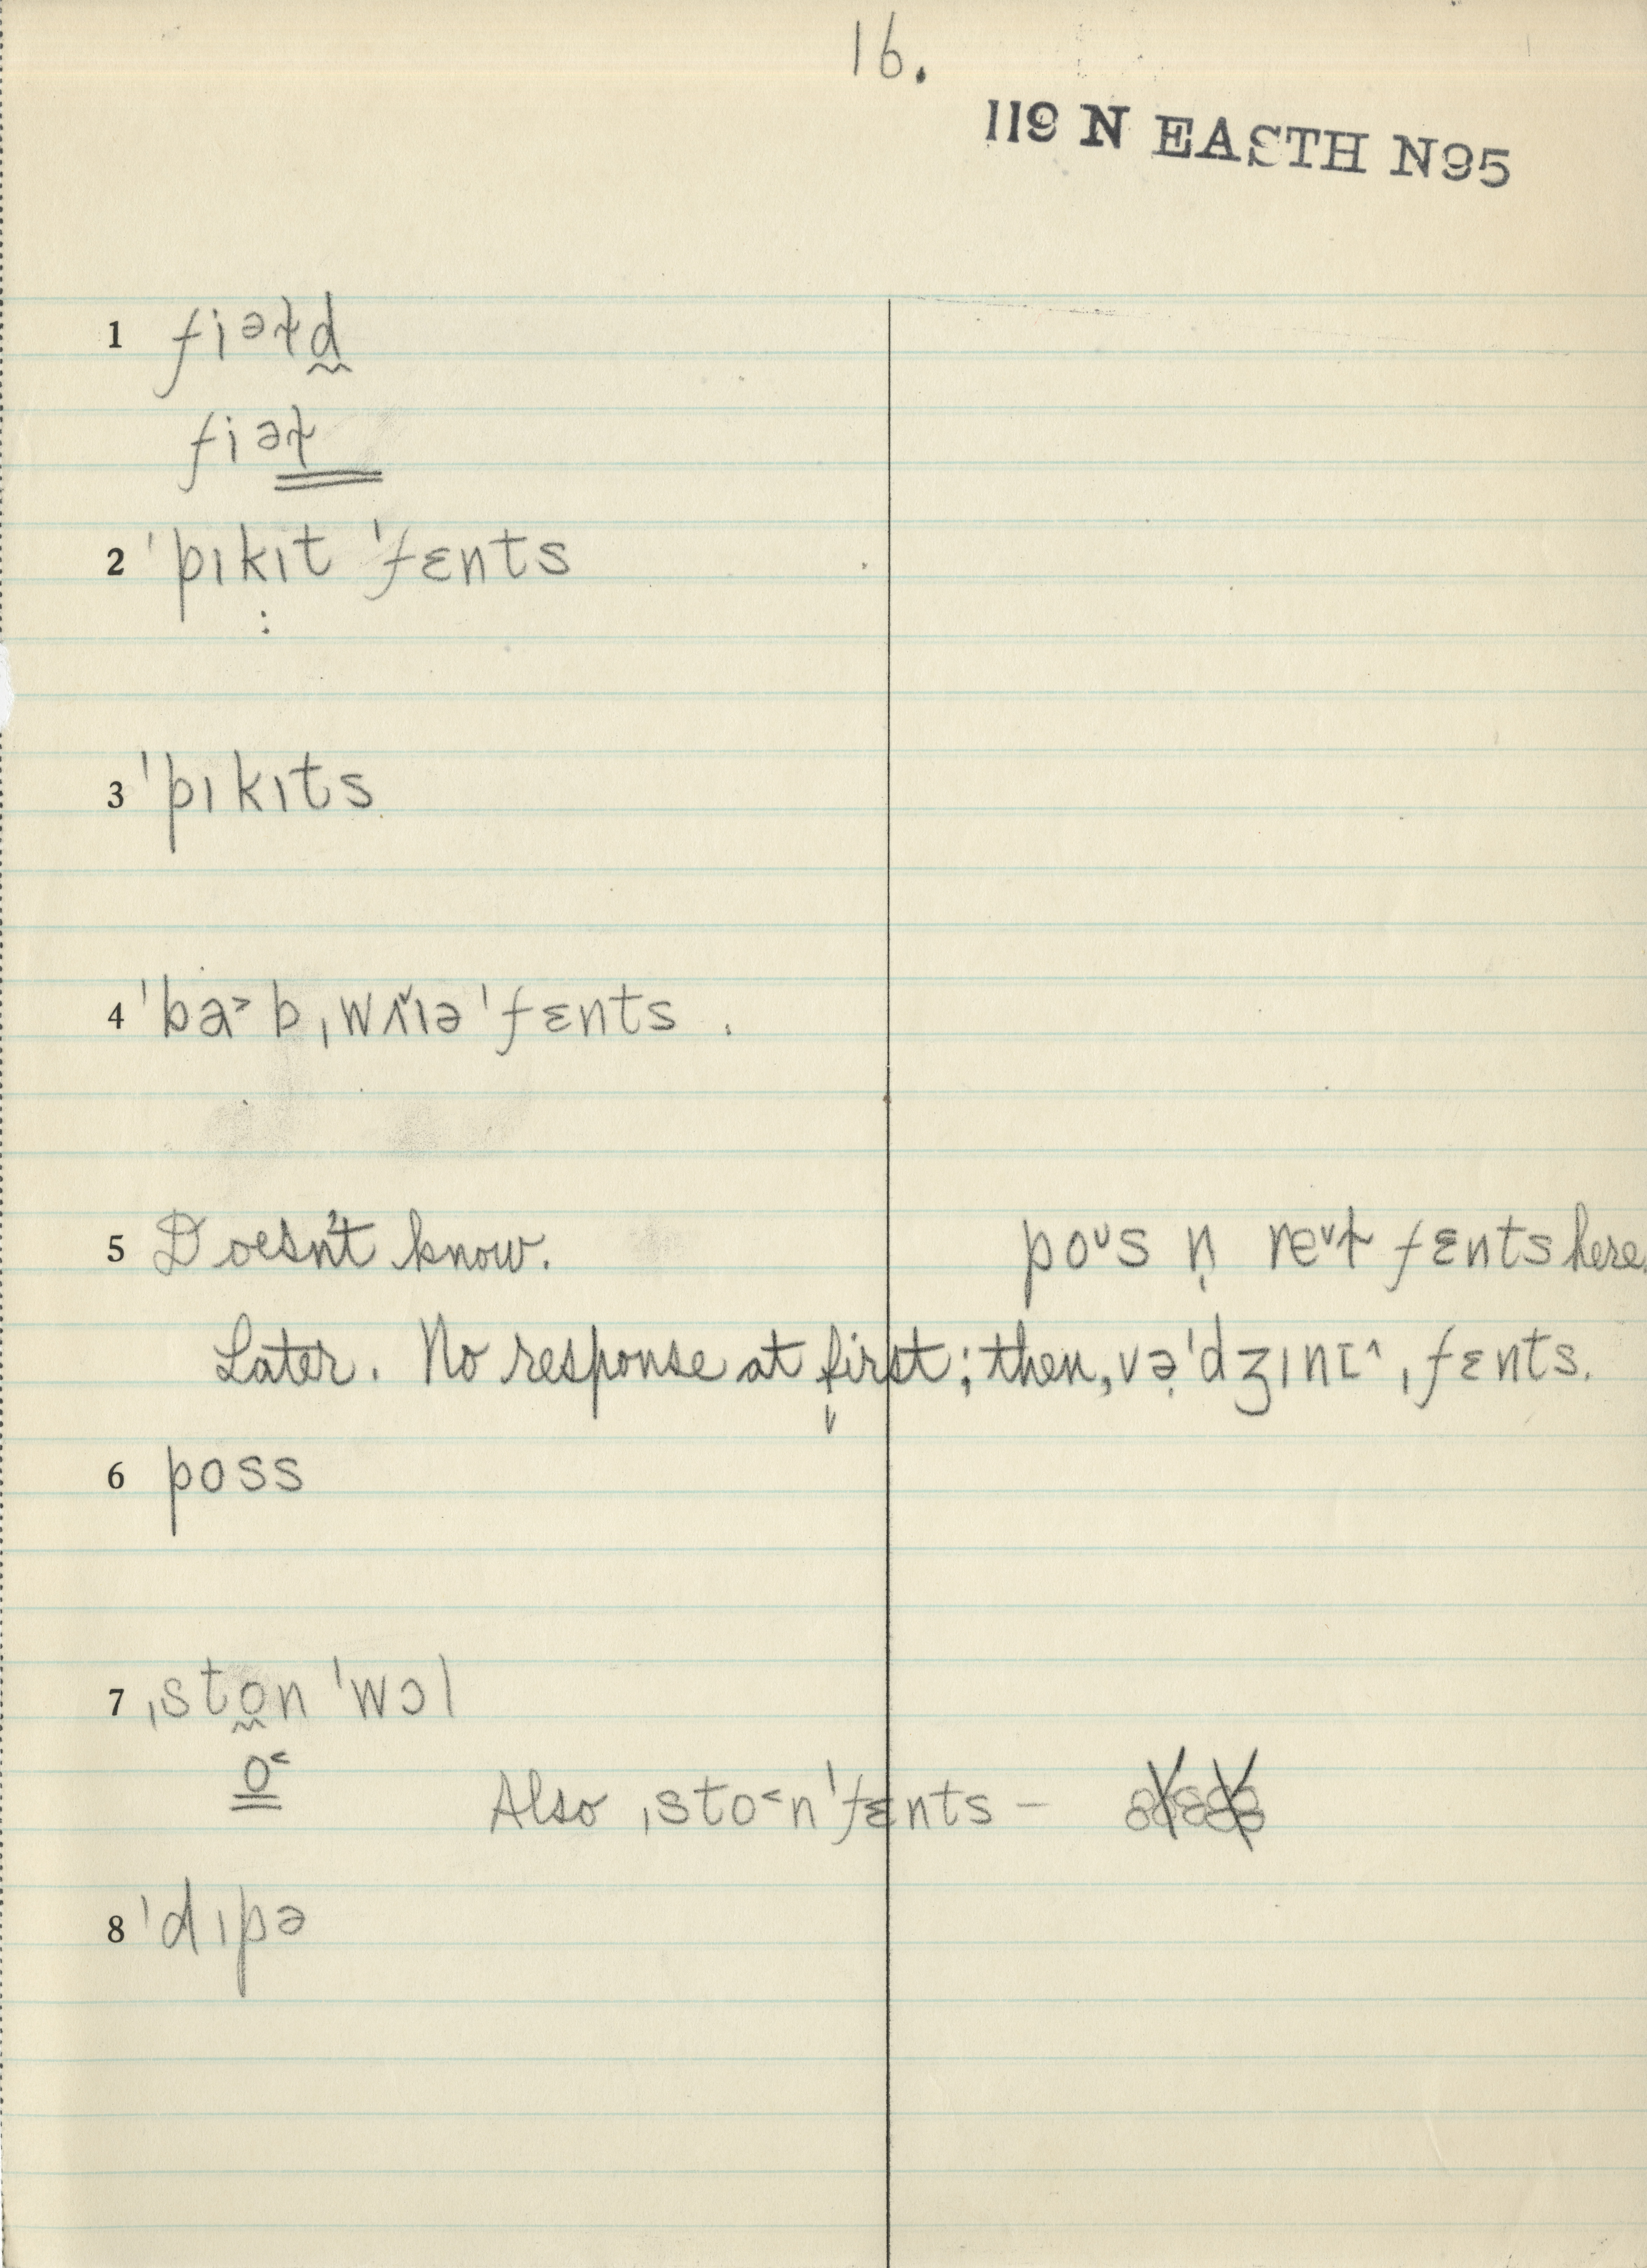 16.
119 N EASTH N95
1 fiəɫd̰
fiəɫ
2 ˈpɪkɪt ˈfɛnts
:
3 ˈpɪkɪts
4 ˈba˃bˌwʌ˅ɪə ˈfɛnts .
5 Doesn't know. po˅s n̩ re˅ɫ fɛnts here.
Later. No response at first; then, və̣ˈdʒɪnɪ^ ˌfɛnts.
6 poss
7 ˌsto̰n ˈwɔl
o˂
Also ˌsto˂nˈfɛnts –
8 ˈdɪpə